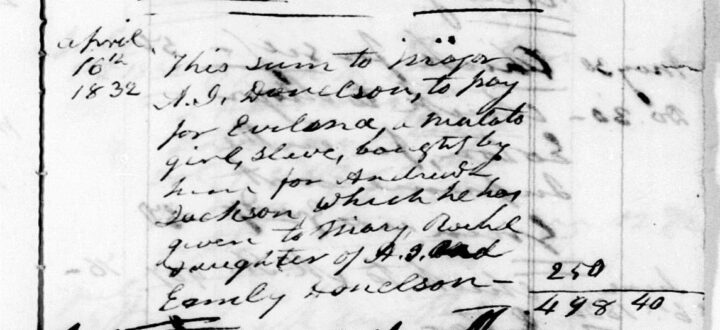 April
16th
1832
This sum to major
A.J. Donelson, to pay
for Evelina, a mulato
girl, slave, bought by
him for Andrew
Jackson, which he has
given to Mary
daughter of A.J. and
Emily Donelson—
250
498 40